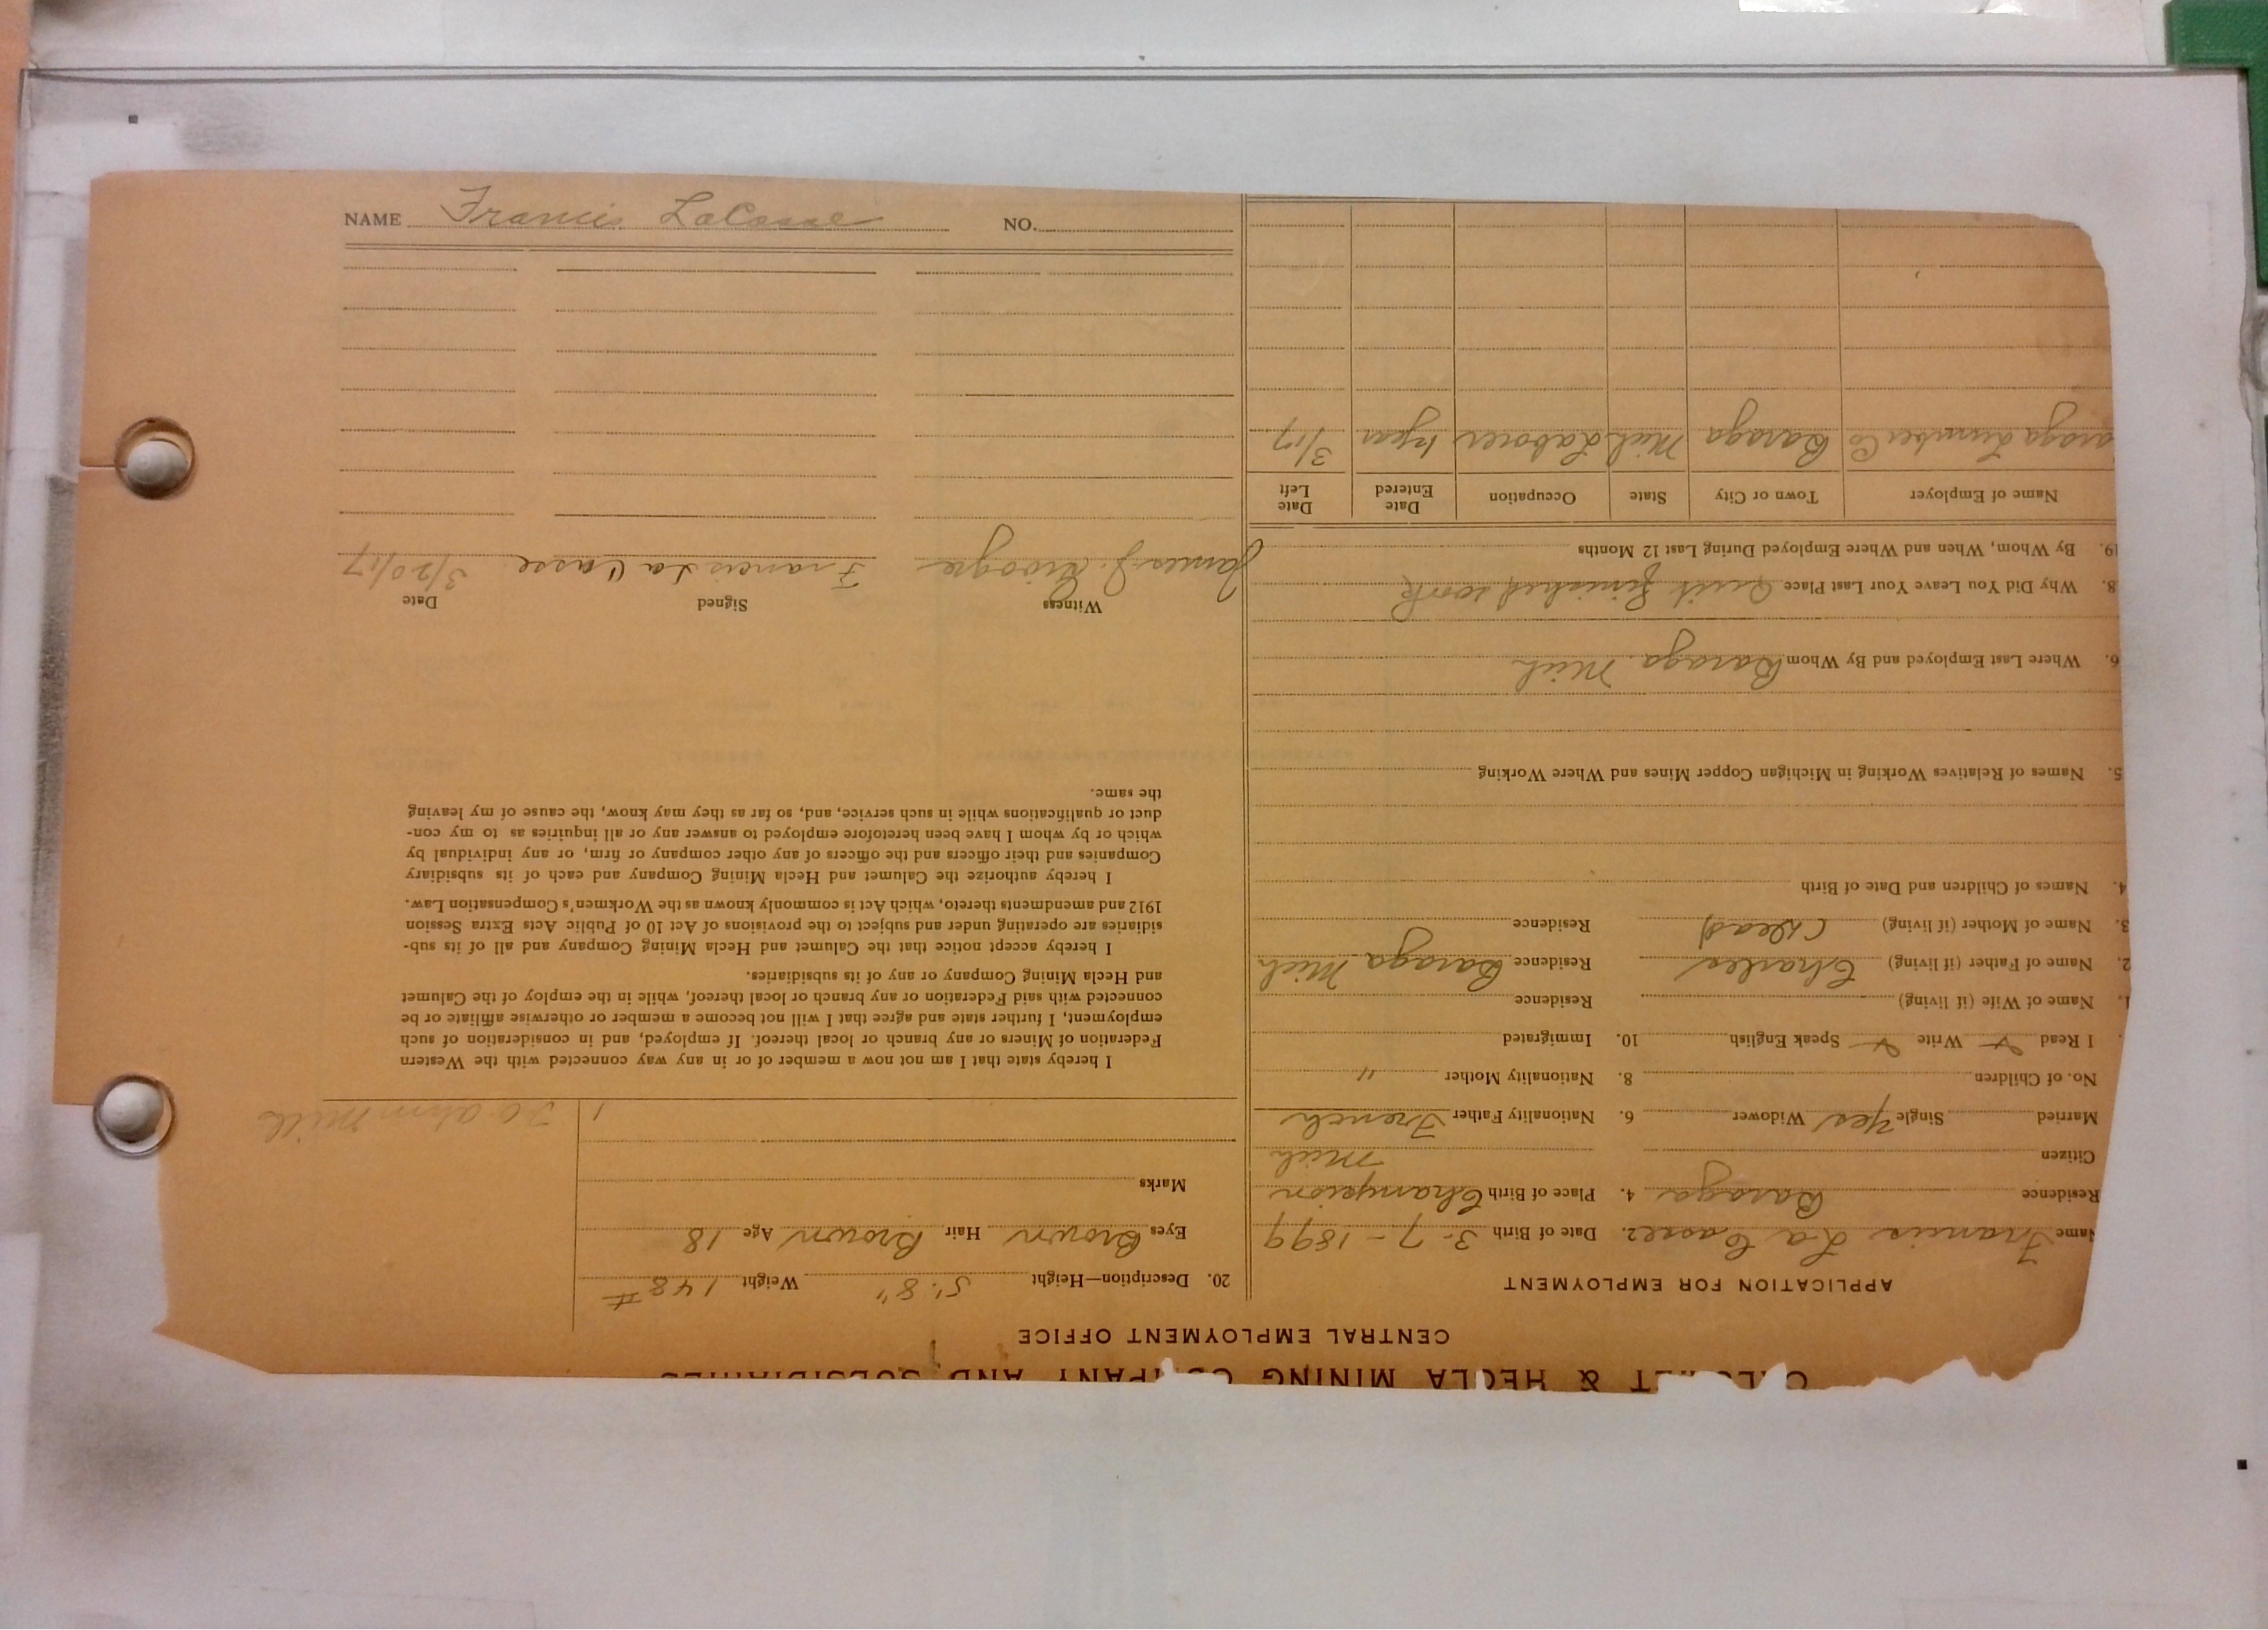 CALUMET & HECLA MINING COMPANY AND SUBSIDIARIES
CENTRAL EMPLOYMENT OFFICE
APPLICATION FOR EMPLOYMENT
Name Francis La Casse 2. Date of Birth 3-7-1899
Residence Baraga 4. Place of Birth Champion
Citizen Mich
Married Single Yes Widower 6. Nationality Father French
No. of Children 8. Nationality Mother "
I Read Write Speak English 10. Immigrated
1. Name of Wife (if living) Residence
2. Name of Father (if living) Charles Residence Baraga Mich
3. Name of Mother (if living) (Dead) Residence
4. Names of Children and Date of Birth
5. Names of Relatives Working in Michigan Copper Mines and Where Working
6. Where Last Employed and By Whom Baraga Mich
8. Why Did You Leave Your Last Place Quit finished work
19. By Whom, When and Where Employed During Last 12 Months
Name of Employer Town or City State Occupation Date Entered Date Left
araga Lumber Co Baraga Mich Laborer 1 year 3/17
20. Description—Height 5'.8" Weight 148 #
Eyes Brown Hair Brown Age 18
Marks
I hereby state that I am not now a member of or in any way connected with the Western
Federation of Miners or any branch or local thereof. If employed, and in consideration of such
employment, I further state and agree that I will not become a member or otherwise affiliate or be
connected with said Federation or any branch or local thereof, while in the employ of the Calumet
and Hecla Mining Company or any of its subsidiaries.
I hereby accept notice that the Calumet and Hecla Mining Company and all of its sub-
sidiaries are operating under and subject to the provisions of Act 10 of Public Acts Extra Session
1912 and amendments thereto, which Act is commonly known as the Workmen's Compensation Law.
I hereby authorize the Calumet and Hecla Mining Company and each of its subsidiary
Companies and their officers and the officers of any other company or firm, or any individual by
which or by whom I have been heretofore employed to answer any or all inquiries as to my con-
duct or qualifications while in such service, and, so far as they may know, the cause of my leaving
the same.
Witness Signed Date
James J. Francis La Casse 3/20/17
NAME Francis LaCasse NO.